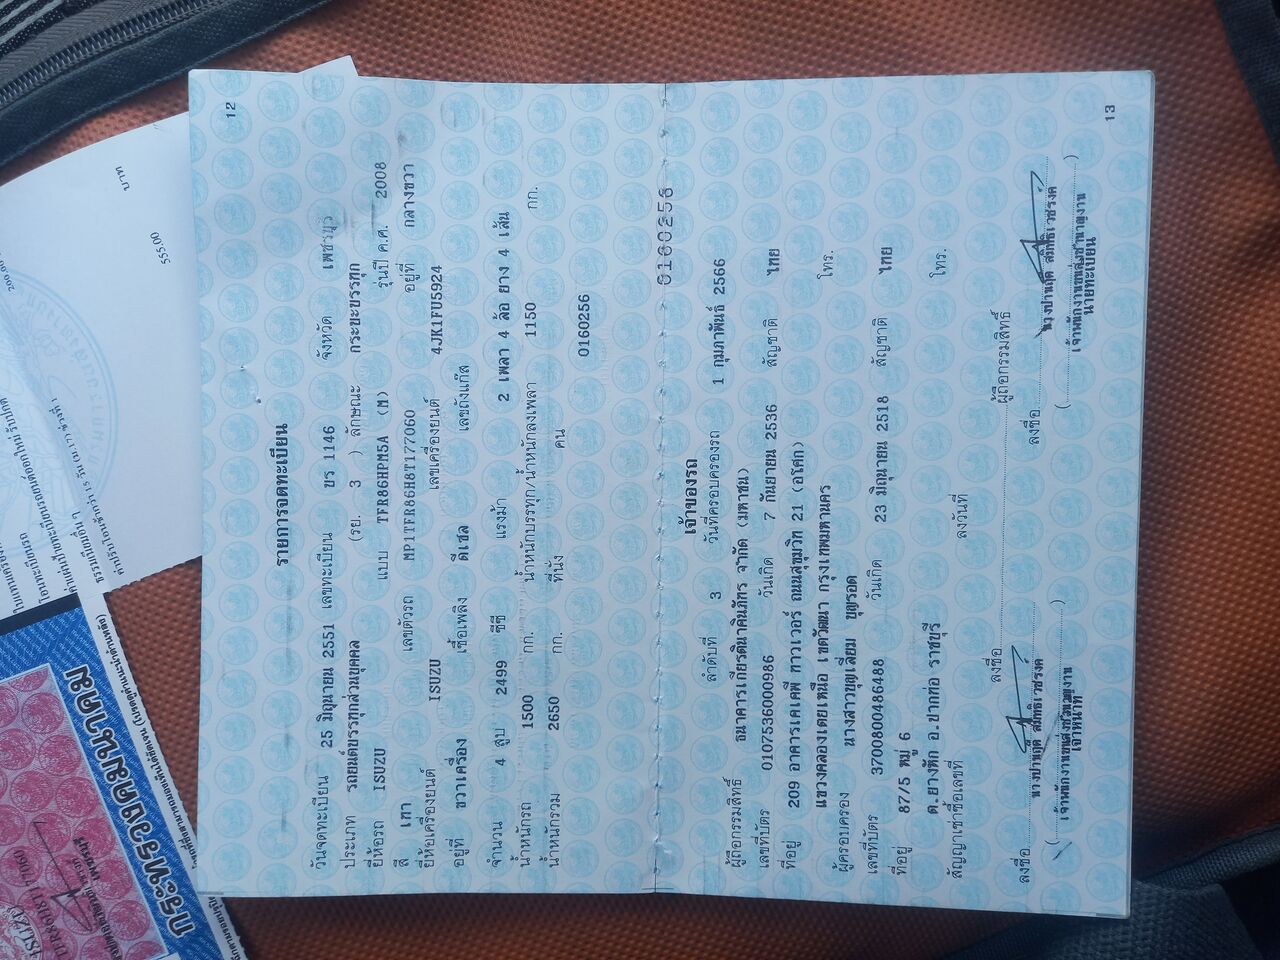 12
รายการจดทะเบียน
วันจดทะเบียน 25 มิถุนายน 2551 เลขทะเบียน บร 1146 จังหวัด เพชรบุรี
ประเภท รถยนต์บรรทุกส่วนบุคคล (รย. 3 ) ลักษณะ กระบะบรรทุก
ยี่ห้อรถ ISUZU แบบ TFR86HPM5A (M) รุ่นปี ค.ศ. 2008
สี เทา เลขตัวรถ MP1TFR86H8T177060 อยู่ที่ กลางขวา
ยี่ห้อเครื่องยนต์ ISUZU เลขเครื่องยนต์ 4JK1FU5924
อยู่ที่ ขวาเครื่อง เชื้อเพลิง ดีเซล เลขถังแก๊ส
จำนวน 4 สูบ 2499 ซีซี แรงม้า 2 เพลา 4 ล้อ ยาง 4 เส้น
น้ำหนักรถ 1500 กก. น้ำหนักบรรทุก/น้ำหนักลงเพลา 1150 กก.
น้ำหนักรวม 2650 กก. ที่นั่ง คน
0160256
0160256
เจ้าของรถ
ลำดับที่ 3 วันที่ครอบครองรถ 1 กุมภาพันธ์ 2566
ผู้ถือกรรมสิทธิ์ ธนาคารเกียรตินาคินภัทร จำกัด (มหาชน)
เลขที่บัตร 0107536000986 วันเกิด 7 กันยายน 2536 สัญชาติ ไทย
ที่อยู่ 209 อาคารเคเคพี ทาวเวอร์ ถนนสุขุมวิท 21 (อโศก)
แขวงคลองเตยเหนือ เขตวัฒนา กรุงเทพมหานคร โทร.
ผู้ครอบครอง นางสาวบุญเลี่ยม บุญรอด
เลขที่บัตร 3700800486488 วันเกิด 23 มิถุนายน 2518 สัญชาติ ไทย
ที่อยู่ 87/5 หมู่ 6
ต.ยางหัก อ.ปากท่อ ราชบุรี โทร.
สัญญาเช่าซื้อเลขที่ ลงวันที่
ลงชื่อ ผู้ถือกรรมสิทธิ์
ลงชื่อ ลงชื่อ
เจ้าหน้าที่ นายทะเบียน
13
บาท
555.00
กระทรวงคมนาคม